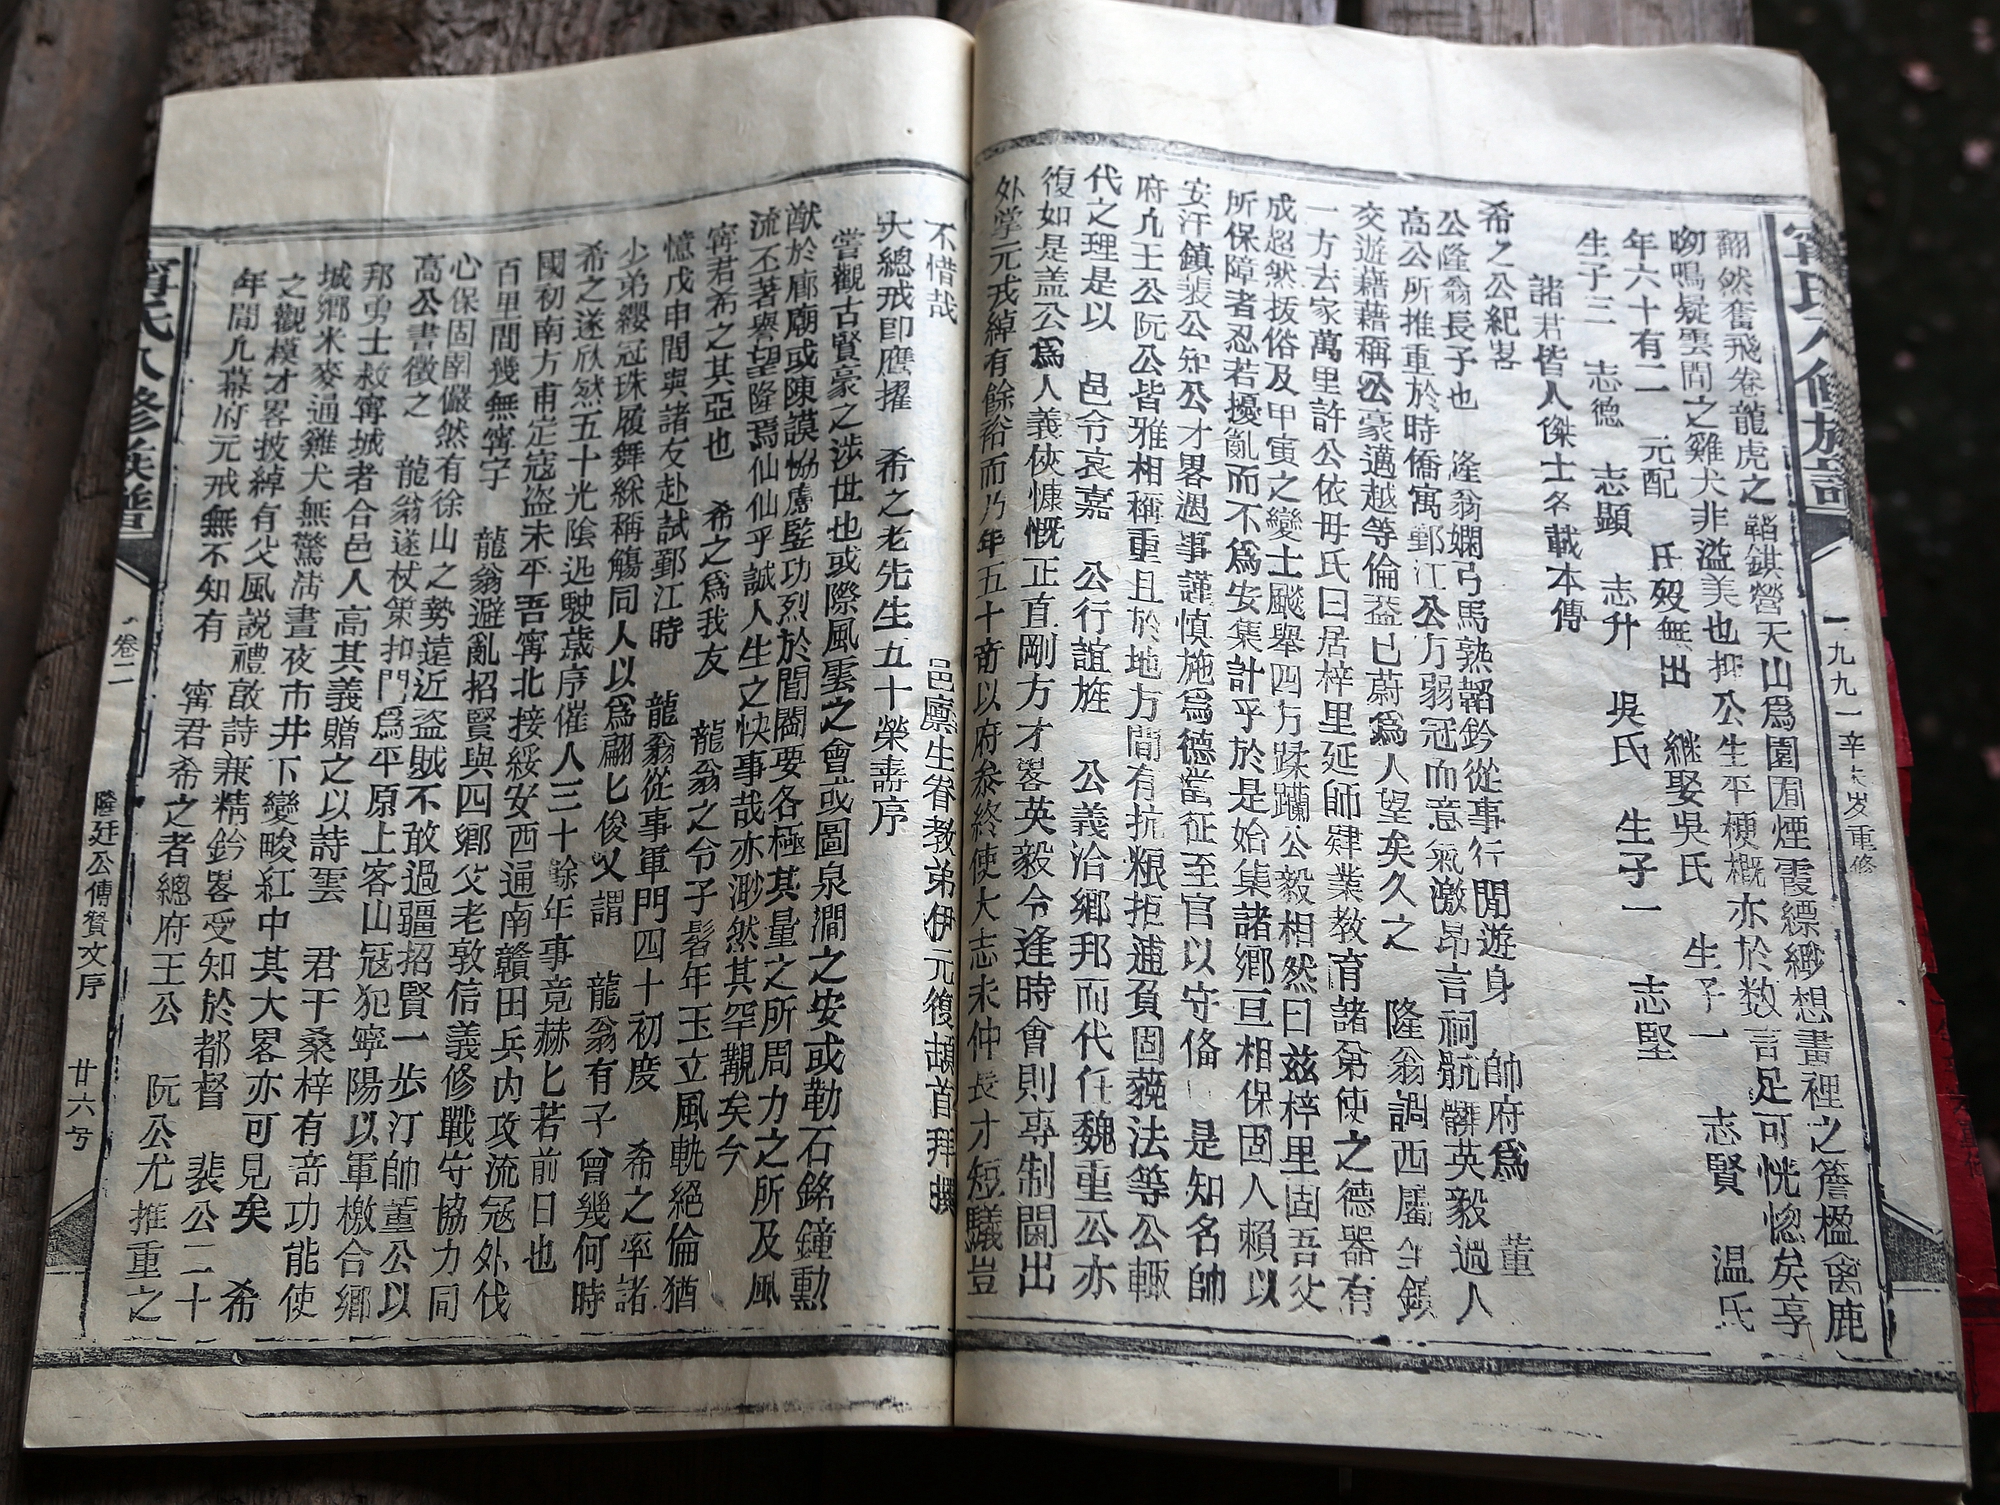 寧氏八修族譜
一九九一辛未岁重修
翩然奮飛卷龍虎之韜鈐營天山爲園囿煙霞縹緲想畫裡之簷楹禽鹿
呦鳴疑雲間之雞犬非溢美也抑公生平梗概亦於数言足可恍惚矣享
年六十有二 元配 氏殁無出 繼娶吳氏 生子一 志賢 温氏
生子三 志德 志顯 志升 吳氏 生子一 志堅
諸君皆人傑士各載本傳
希之公紀畧
公隆翁長子也 隆翁嫻弓馬熟韜鈐從事行間遊身 帥府爲 董
高公所推重於時僑寓鄞江公方弱冠而意氣激昂言祠骯髒英毅過人
交遊藉藉稱公豪邁越等倫盖已蔚爲人望矣久之 隆翁調西屬
一方去家萬里許公依毋氏曰居梓里延師肄業教育諸弟使之德器有
成超然拔俗及甲寅之變士颷舉四方蹂躪公毅相然曰兹梓里固吾父
所保障者忍若擾亂而不爲安集計乎於是始集諸鄉亘相保固人賴以
安汗鎮裴公知公才畧遇事謹慎施爲德當征至官以守俻 是知名帥
府凡王公阮公皆雅相稱重且於地方間有抗粮拒逋負固藐法等公輙
代之理是以 邑令哀嘉 公行誼旌 公義洽鄉邦而代任魏重公亦
復如是盖公爲人義俠慷慨正直剛方才畧英毅令逢時會則專制閫出
外掌元戎綽有餘裕而乃年五十竒以府叅終使大志未伸長才短議豈
不惜哉
邑廪生眷教弟伊元復頓首拜撰
大總戎即應擢 希之老先生五十榮壽序
嘗觀古賢豪之涉世也或際風雲之會或圖泉澗之安或勒石銘鐘勳
猷於廊廟或陳謨協慮監功烈於閭閻要各極其量之所周力之所及風
流丕著譽望隆焉仙仙乎誠人生之快事哉亦渺然其罕覯矣今
寧君希之其亞也 希之爲我友 龍翁之令子髫年玉立風軌絕倫猶
憶戊申間與諸友赴試鄞江時 龍翁從事軍門四十初度 希之率諸
少弟纓冠珠履舞綵稱觴同人以爲翩匕俊乂謂 龍翁有子曾幾何時
希之遂欣然五十光陰迅駛歳序催人三十餘年事竟赫匕若前日也
國初南方甫定寇盗未平吾寧北接綏安西通南贛田兵内攻流冦外伐
百里間幾無寧字 龍翁避亂招賢與四鄉父老敦信義修戰守協力同
心保固圉儼然有徐山之勢遠近盗賊不敢過疆招賢一步汀帥董公以
高公書徵之 龍翁遂杖策扣門爲平原上客山寇犯寧陽以軍檄合鄉
邦勇士救寧城者合邑人高其義贈之以詩雲 君干桑梓有竒功能使
城鄉米麥通雞犬無驚淸晝夜市井下變畯紅中其大畧亦可見矣 希
之觀模才畧披綽有父風説禮敢詩兼精鈐畧受知於都督 裴公二十
年間凡幕府元戎無不知有 寧君希之者總府王公 阮公尤推重之
寧氏八修族譜
卷二
隆廷公傳贊文序
廿六号